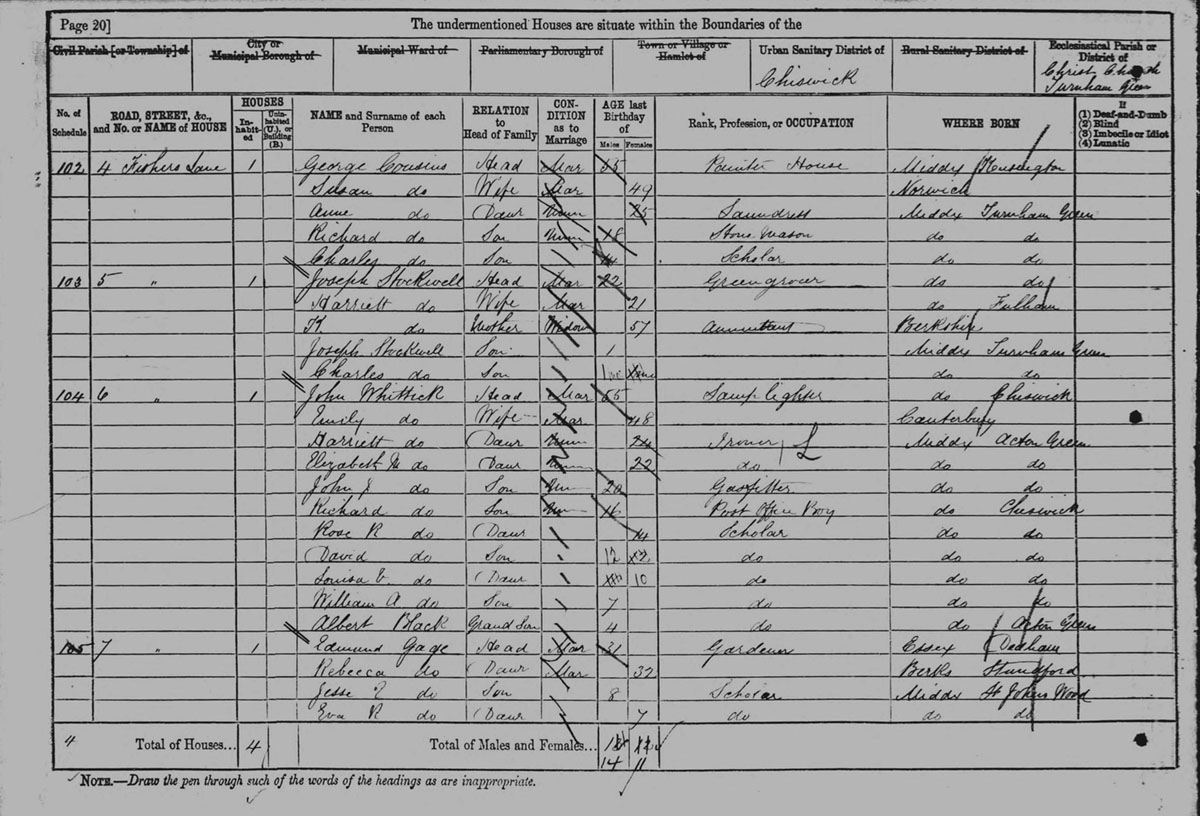 Page 20] The undermentioned Houses are situate within the Boundaries of the
Civil Parish [or Township] of City or Municipal Borough of Municipal Ward of Parliamentary Borough of Town or Village or Hamlet of Urban Sanitary District of Rural Sanitary District of Ecclesiastical Parish or District of
Chiswick Christ Church Turnham Green
No. of Schedule ROAD, STREET, &c., and No. or NAME of HOUSE HOUSES Inhabited Uninhabited (U.), or Building (B.) NAME and Surname of each Person RELATION to Head of Family CONDITION as to Marriage AGE last Birthday of Males Females Rank, Profession, or OCCUPATION WHERE BORN If (1) Deaf-and-Dumb (2) Blind (3) Imbecile or Idiot (4) Lunatic
102 4 Fishers Lane 1 George Cousins Head Mar 55 Painter House Middx Kensington
Susan do Wife Mar 49 Norwich
Anne do Daur Unm 25 Middx Turnham Green
Richard do Son Unm 18 Stone Mason do do
Charles do Son 14 Scholar do do
103 5 " 1 Joseph Stockwell Head Mar 22 Greengrocer do do
Harriett do Wife Mar 21 do Fulham
H. do Mother Widow 57 Annuitant Berkshire
Joseph Stockwell Son 1 Middx Turnham Green
Charles do Son 1 do do
104 6 " 1 John Whittick Head Mar 55 Lamp lighter do Chiswick
Emily do Wife Mar 48 Canterbury
Harriett do Daur Unm 24 Ironer L Middx Acton Green
Elizabeth M do Daur Unm 22 do do do
John J do Son Un 20 Gasfitter do do
Richard do Son Un 16 Post Office Boy do Chiswick
Rose R do Daur 14 Scholar do do
David do Son 12 12 do do do
Louisa E. do Daur 10 do do do
William A do Son 7 do do do
Albert Black Grand Son 4 do do Acton Green
105 7 " 1 Edmund Gage Head Mar 31 Gardener Essex Dedham
Rebecca do Daur Mar 32 Berks
Jesse E do Son 8 Scholar Middx St Johns Wood
Eva R do Daur 7 do do do
4 Total of Houses... 4 Total of Males and Females... 12
14 11
NOTE.—Draw the pen through such of the words of the headings as are inappropriate.